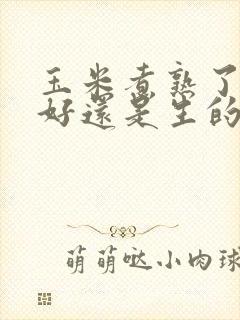 玉米煮熟了
好還是生的
萌萌哒小肉球